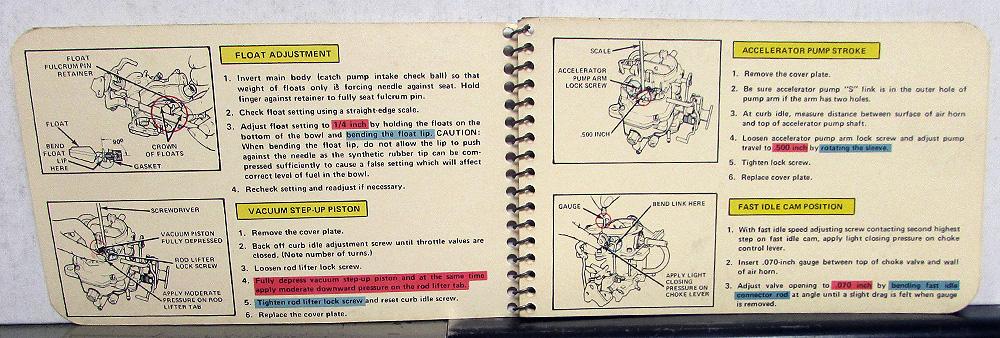 FLOAT
FULCRUM PIN
RETAINER
FLOAT
BEND
FLOAT
LIP
HERE
90°
GASKET
CROWN
OF FLOATS
FLOAT ADJUSTMENT
1. Invert main body (catch pump intake check ball) so that
weight of floats only is forcing needle against seat. Hold
finger against retainer to fully seat fulcrum pin.
2. Check float setting using a straight-edge scale.
3. Adjust float setting to 1/4 inch by holding the floats on the
bottom of the bowl and bending the float lip. CAUTION:
When bending the float lip, do not allow the lip to push
against the needle as the synthetic rubber tip can be com-
pressed sufficiently to cause a false setting which will affect
correct level of fuel in the bowl.
4. Recheck setting and readjust if necessary.
SCREWDRIVER
VACUUM PISTON
FULLY DEPRESSED
ROD LIFTER
LOCK SCREW
APPLY MODERATE
PRESSURE ON ROD
LIFTER TAB
VACUUM STEP-UP PISTON
1. Remove the cover plate.
2. Back off curb idle adjustment screw until throttle valves are
closed. (Note number of turns.)
3. Loosen rod lifter lock screw.
4. Fully depress vacuum step-up piston and at the same time
apply moderate downward pressure on the rod lifter tab.
5. Tighten rod lifter lock screw and reset curb idle screw.
6. Replace the cover plate.
SCALE
ACCELERATOR
PUMP ARM
LOCK SCREW
.500 INCH
ACCELERATOR PUMP STROKE
1. Remove the cover plate.
2. Be sure accelerator pump "S" link is in the outer hole of
pump arm if the arm has two holes.
3. At curb idle, measure distance between surface of air horn
and top of accelerator pump shaft.
4. Loosen accelerator pump arm lock screw and adjust pump
travel to .500 inch by rotating the sleeve.
5. Tighten lock screw.
6. Replace cover plate.
GAUGE
BEND LINK HERE
APPLY LIGHT
CLOSING
PRESSURE ON
CHOKE LEVER
FAST IDLE CAM POSITION
1. With fast idle speed adjusting screw contacting second highest
step on fast idle cam, apply light closing pressure on choke
control lever.
2. Insert .070-inch gauge between top of choke valve and wall
of air horn.
3. Adjust valve opening to .070 inch by bending fast idle
connector rod at angle until a slight drag is felt when gauge
is removed.